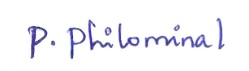 P. Philominal